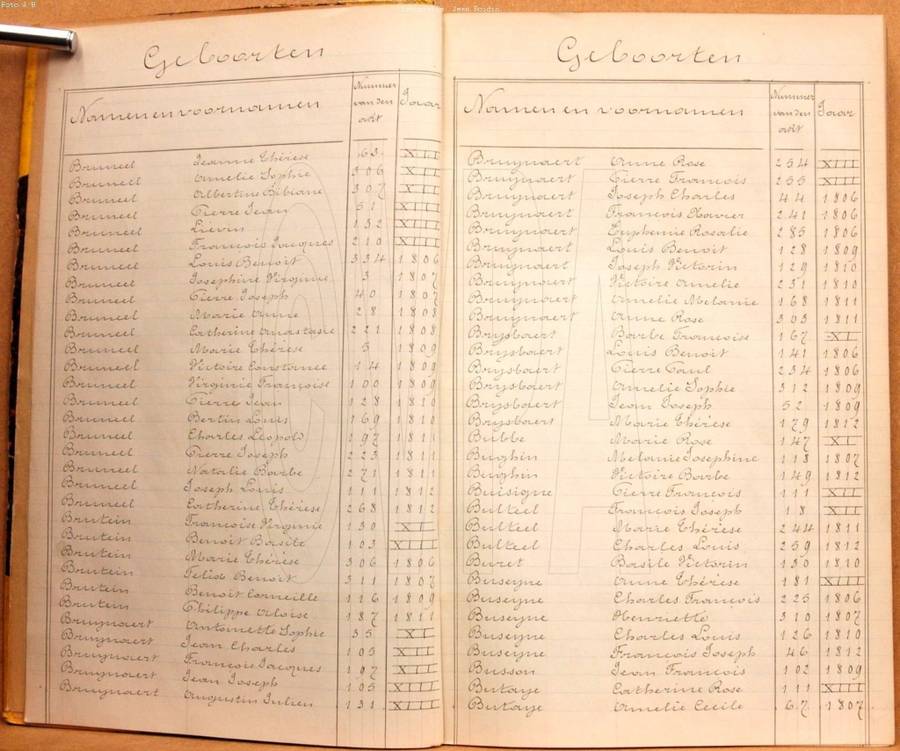 Foto 4 B
Jean Boidin
Geboorten
Namen en voornamen Nummer van den akt Jaar
Bruneel Jeanne Thérèse 63 XII
Bruneel Amelie Sophie 306 XII
Bruneel Albertine Bibiane 307 XII
Bruneel Pierre Jean 51 XIII
Bruneel Lievin 132 XIII
Bruneel François Jacques 210 XIII
Bruneel Louis Benoit 334 1806
Bruneel Josephine Virginie 3 1807
Bruneel Pierre Joseph 40 1807
Bruneel Marie Anne 28 1808
Bruneel Catherine Anastasie 221 1808
Bruneel Marie Thérèse 5 1809
Bruneel Victoire Constance 14 1809
Bruneel Virginie Françoise 100 1809
Bruneel Pierre Jean 128 1810
Bruneel Bertin Louis 169 1810
Bruneel Charles Léopold 197 1811
Bruneel Pierre Joseph 223 1811
Bruneel Natalie Barbe 271 1811
Bruneel Joseph Louis 111 1812
Bruneel Catherine Thérèse 268 1812
Brutein Françoise Virginie 130 XI
Brutein Benoit Basile 103 XIII
Brutein Marie Thérèse 306 1806
Brutein Felix Benoit 311 1807
Brutein Benoit Corneille 116 1809
Brutein Philippe Aloise 187 1811
Bruynaert Antoinette Sophie 35 XI
Bruynaert Jean Charles 105 XII
Bruynaert François Jacques 197 XII
Bruynaert Jean Joseph 105 XIII
Bruynaert Augustin Julien 131 XIII
Geboorten
Namen en voornamen Nummer van den akt Jaar
Bruynaert Anne Rose 254 XIII
Bruynaert Pierre François 255 XIII
Bruynaert Joseph Charles 44 1806
Bruynaert François Xavier 241 1806
Bruynaert Euphemie Rosalie 285 1806
Bruynaert Louis Benoit 128 1809
Bruynaert Joseph Victorin 129 1810
Bruynaert Victoire Amelie 231 1810
Bruynaert Amelie Melanie 168 1811
Bruynaert Anne Rose 303 1811
Brysbaert Barbe Françoise 167 XI
Brysbaert Louis Benoit 141 1806
Brysbaert Pierre Paul 234 1806
Brysbaert Amelie Sophie 312 1809
Brysbaert Jean Joseph 52 1809
Brysbaert Marie Thérèse 179 1812
Bubbe Marie Rose 147 XI
Bughin Melanie Josephine 113 1807
Bughin Victoire Barbe 149 1812
Buisigne Pierre François 111 XII
Bulteel François Joseph 18 XII
Bulteel Marie Thérèse 244 1811
Bulteel Charles Louis 259 1812
Buret Basile Victorin 130 1810
Buseyne Anne Thérèse 181 XIII
Buseyne Charles François 225 1806
Buseyne Henriette 310 1807
Buseyne Charles Louis 126 1810
Buseyne François Joseph 46 1812
Busson Jean François 102 1809
Butaye Catherine Rose 111 XIII
Butaye Amelie Cecile 67 1807